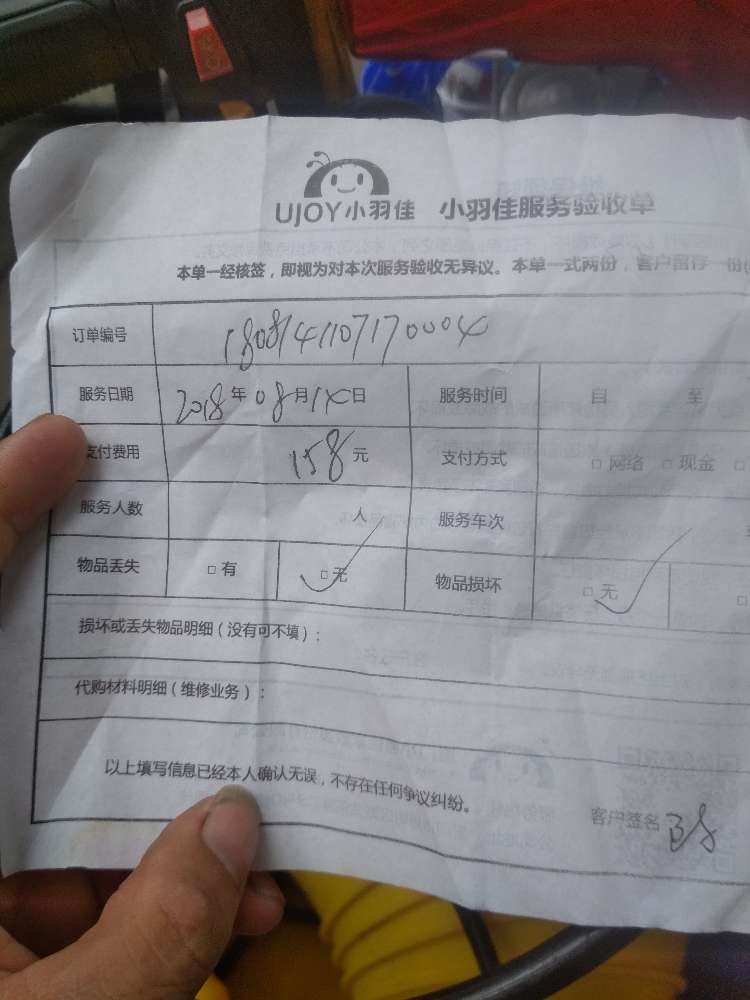 UJOY小羽佳 小羽佳服务验收单
本单一经核签，即视为对本次服务验收无异议。本单一式两份，客户留存一份
订单编号 1808141107170004
服务日期 2018年08月14日 服务时间 自 至
支付费用 158元 支付方式 □ 网络 □ 现金 □
服务人数 人 服务车次
物品丢失 □ 有 □ 无 物品损坏 □ 无 □
损坏或丢失物品明细（没有可不填）：
代购材料明细（维修业务）：
以上填写信息已经本人确认无误，不存在任何争议纠纷。
客户签名